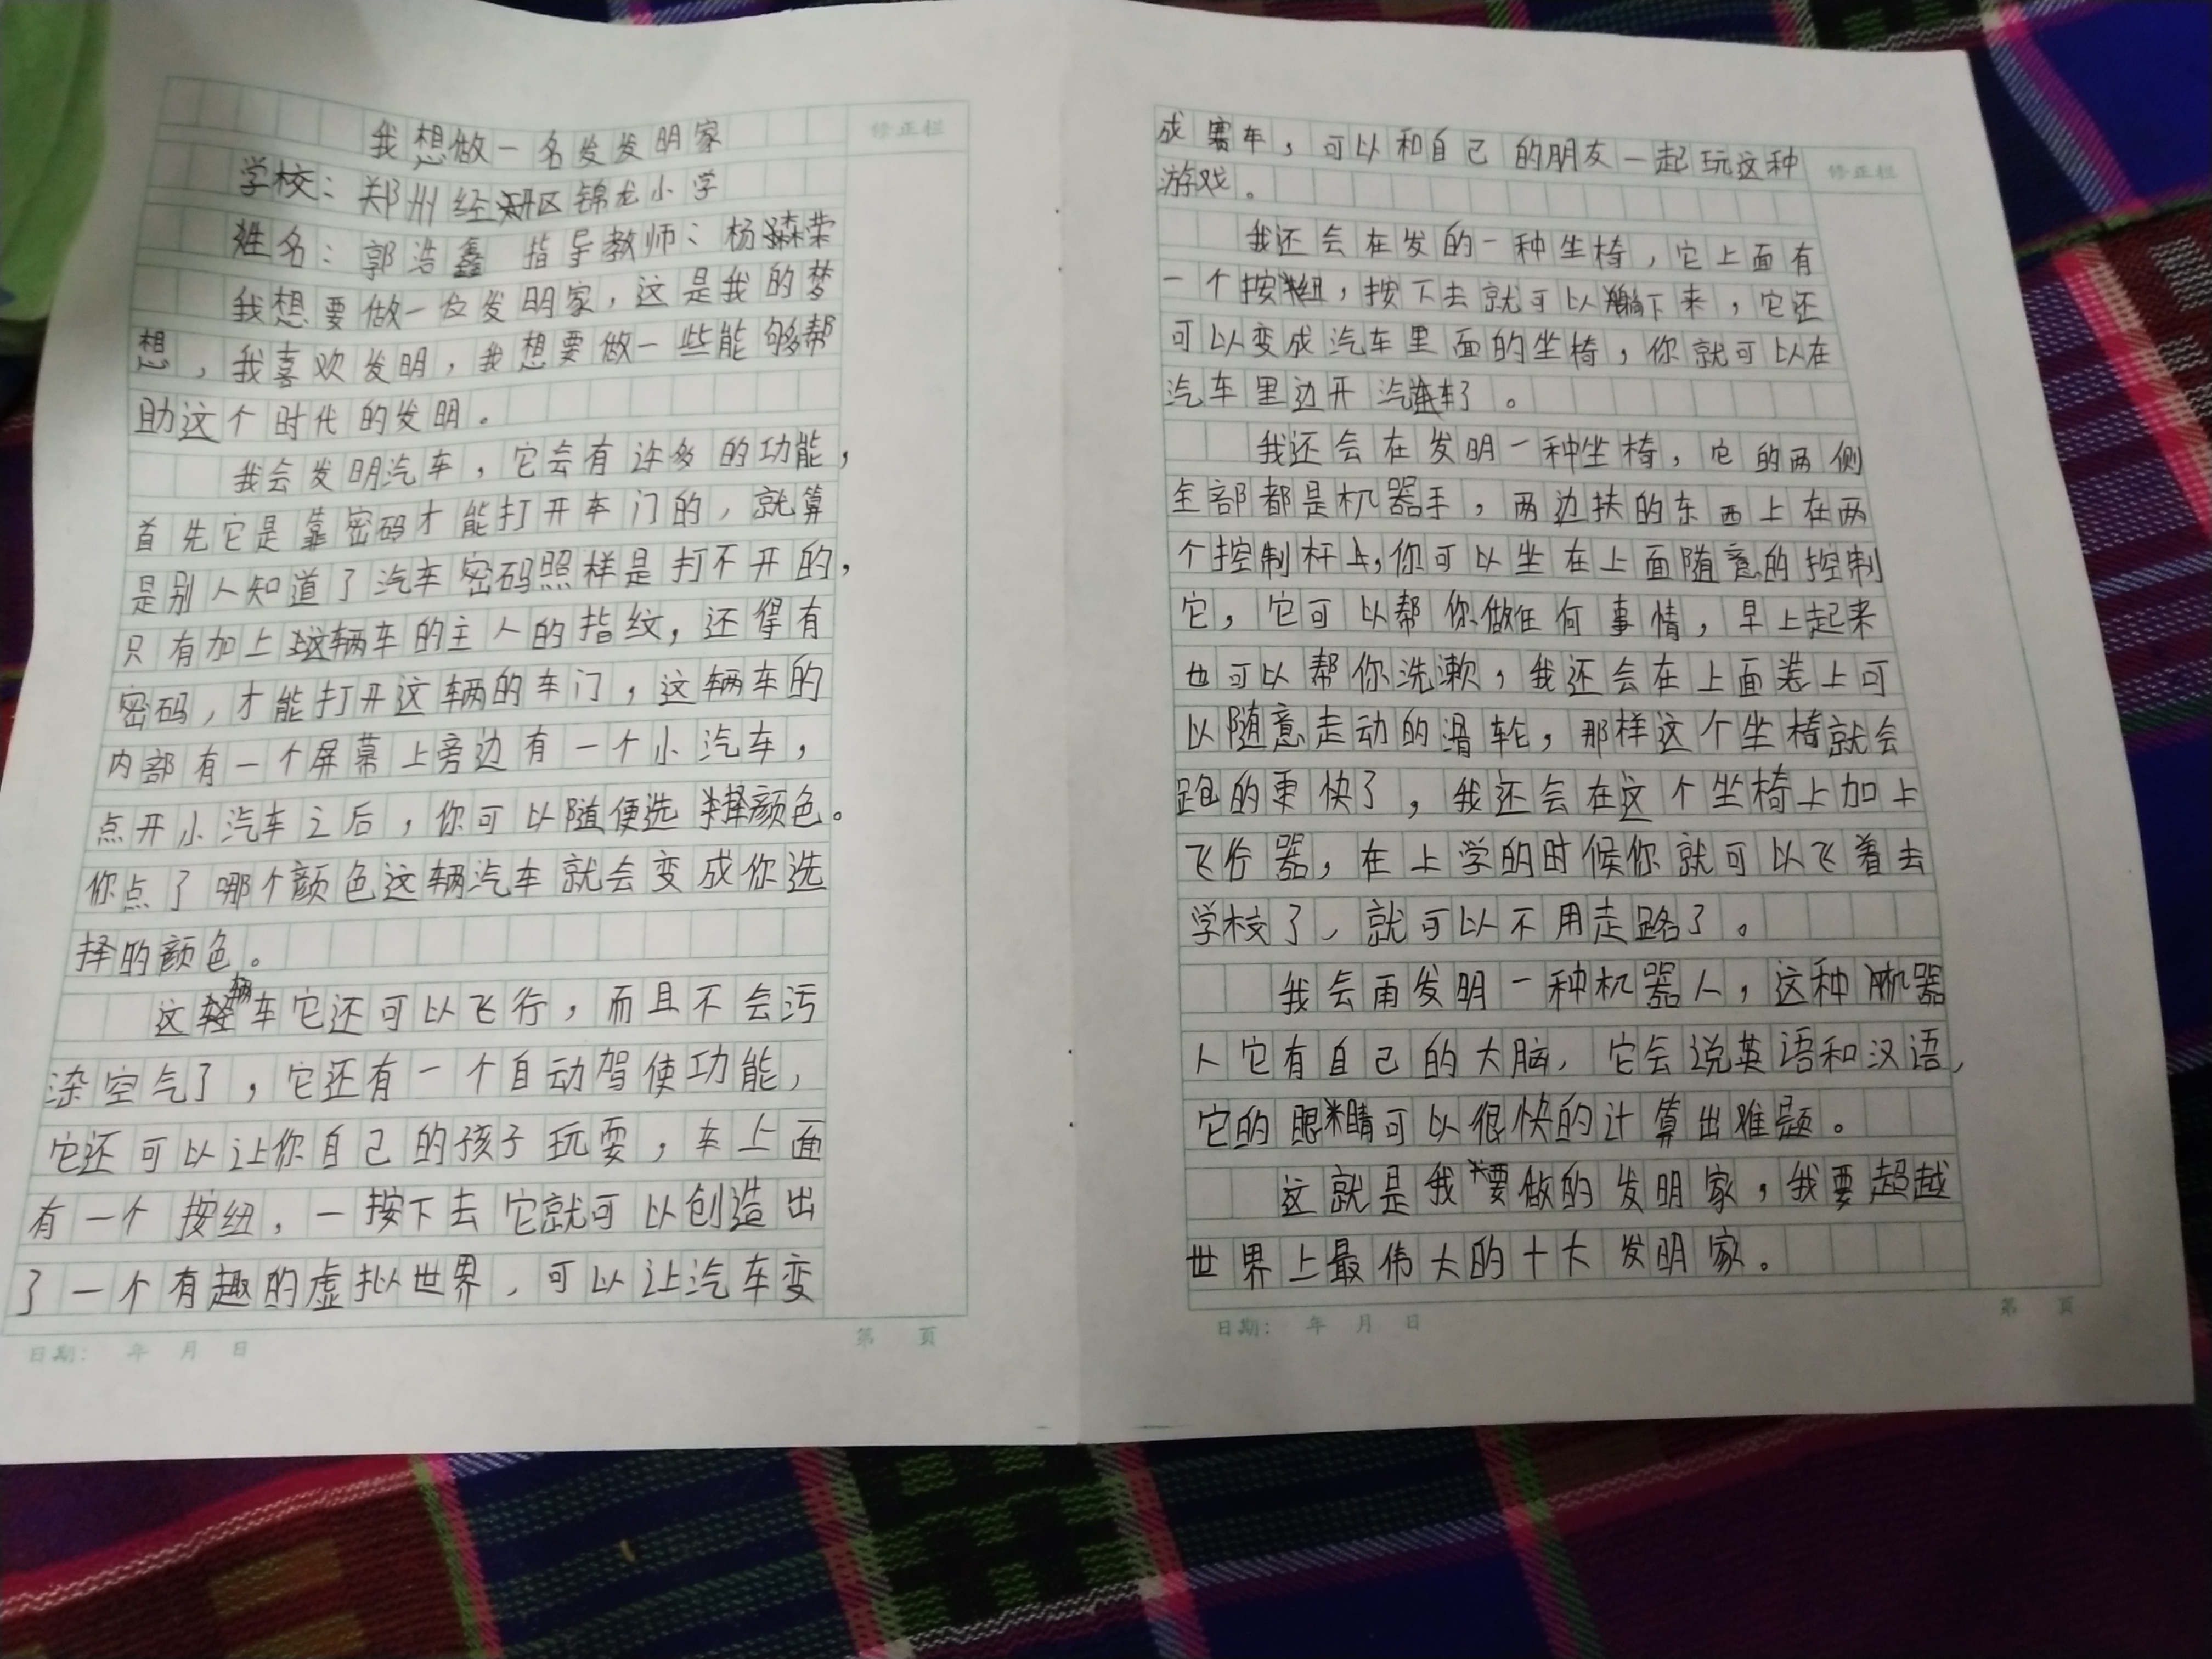 我想做一名发发明家
修正栏
学校：郑州经开区锦龙小学
姓名：郭浩鑫 指导教师：杨森荣
我想要做一位发明家，这是我的梦
想，我喜欢发明，我想要做一些能够帮
助这个时代的发明。
我会发明汽车，它会有许多的功能，
首先它是靠密码才能打开车门的，就算
是别人知道了汽车密码照样是打不开的，
只有加上这辆车的主人的指纹，还得有
密码，才能打开这辆的车门，这辆车的
内部有一个屏幕上旁边有一个小汽车，
点开小汽车之后，你可以随便选择颜色。
你点了哪个颜色这辆汽车就会变成你选
择的颜色。
这辆车它还可以飞行，而且不会污
染空气了，它还有一个自动驾使功能，
它还可以让你自己的孩子玩耍，车上面
有一个按纽，一按下去它就可以创造出
了一个有趣的虚拟世界，可以让汽车变
日期： 年 月 日
第 页
成赛车，可以和自己的朋友一起玩这种
修正栏
游戏。
我还会在发的一种坐椅，它上面有
一个按纽，按下去就可以躺下来，它还
可以变成汽车里面的坐椅，你就可以在
汽车里边开汽车了。
我还会在发明一种坐椅，它的两侧
全部都是机器手，两边扶的东西上在两
个控制杆上，你可以坐在上面随意的控制
它，它可以帮你做任何事情，早上起来
也可以帮你洗漱，我还会在上面装上可
以随意走动的滑轮，那样这个坐椅就会
跑的更快了，我还会在这个坐椅上加上
飞行器，在上学的时候你就可以飞着去
学校了，就可以不用走路了。
我会再发明一种机器人，这种机器
人它有自己的大脑，它会说英语和汉语，
它的眼睛可以很快的计算出难题。
这就是我要做的发明家，我要超越
世界上最伟大的十大发明家。
日期： 年 月 日
第 页